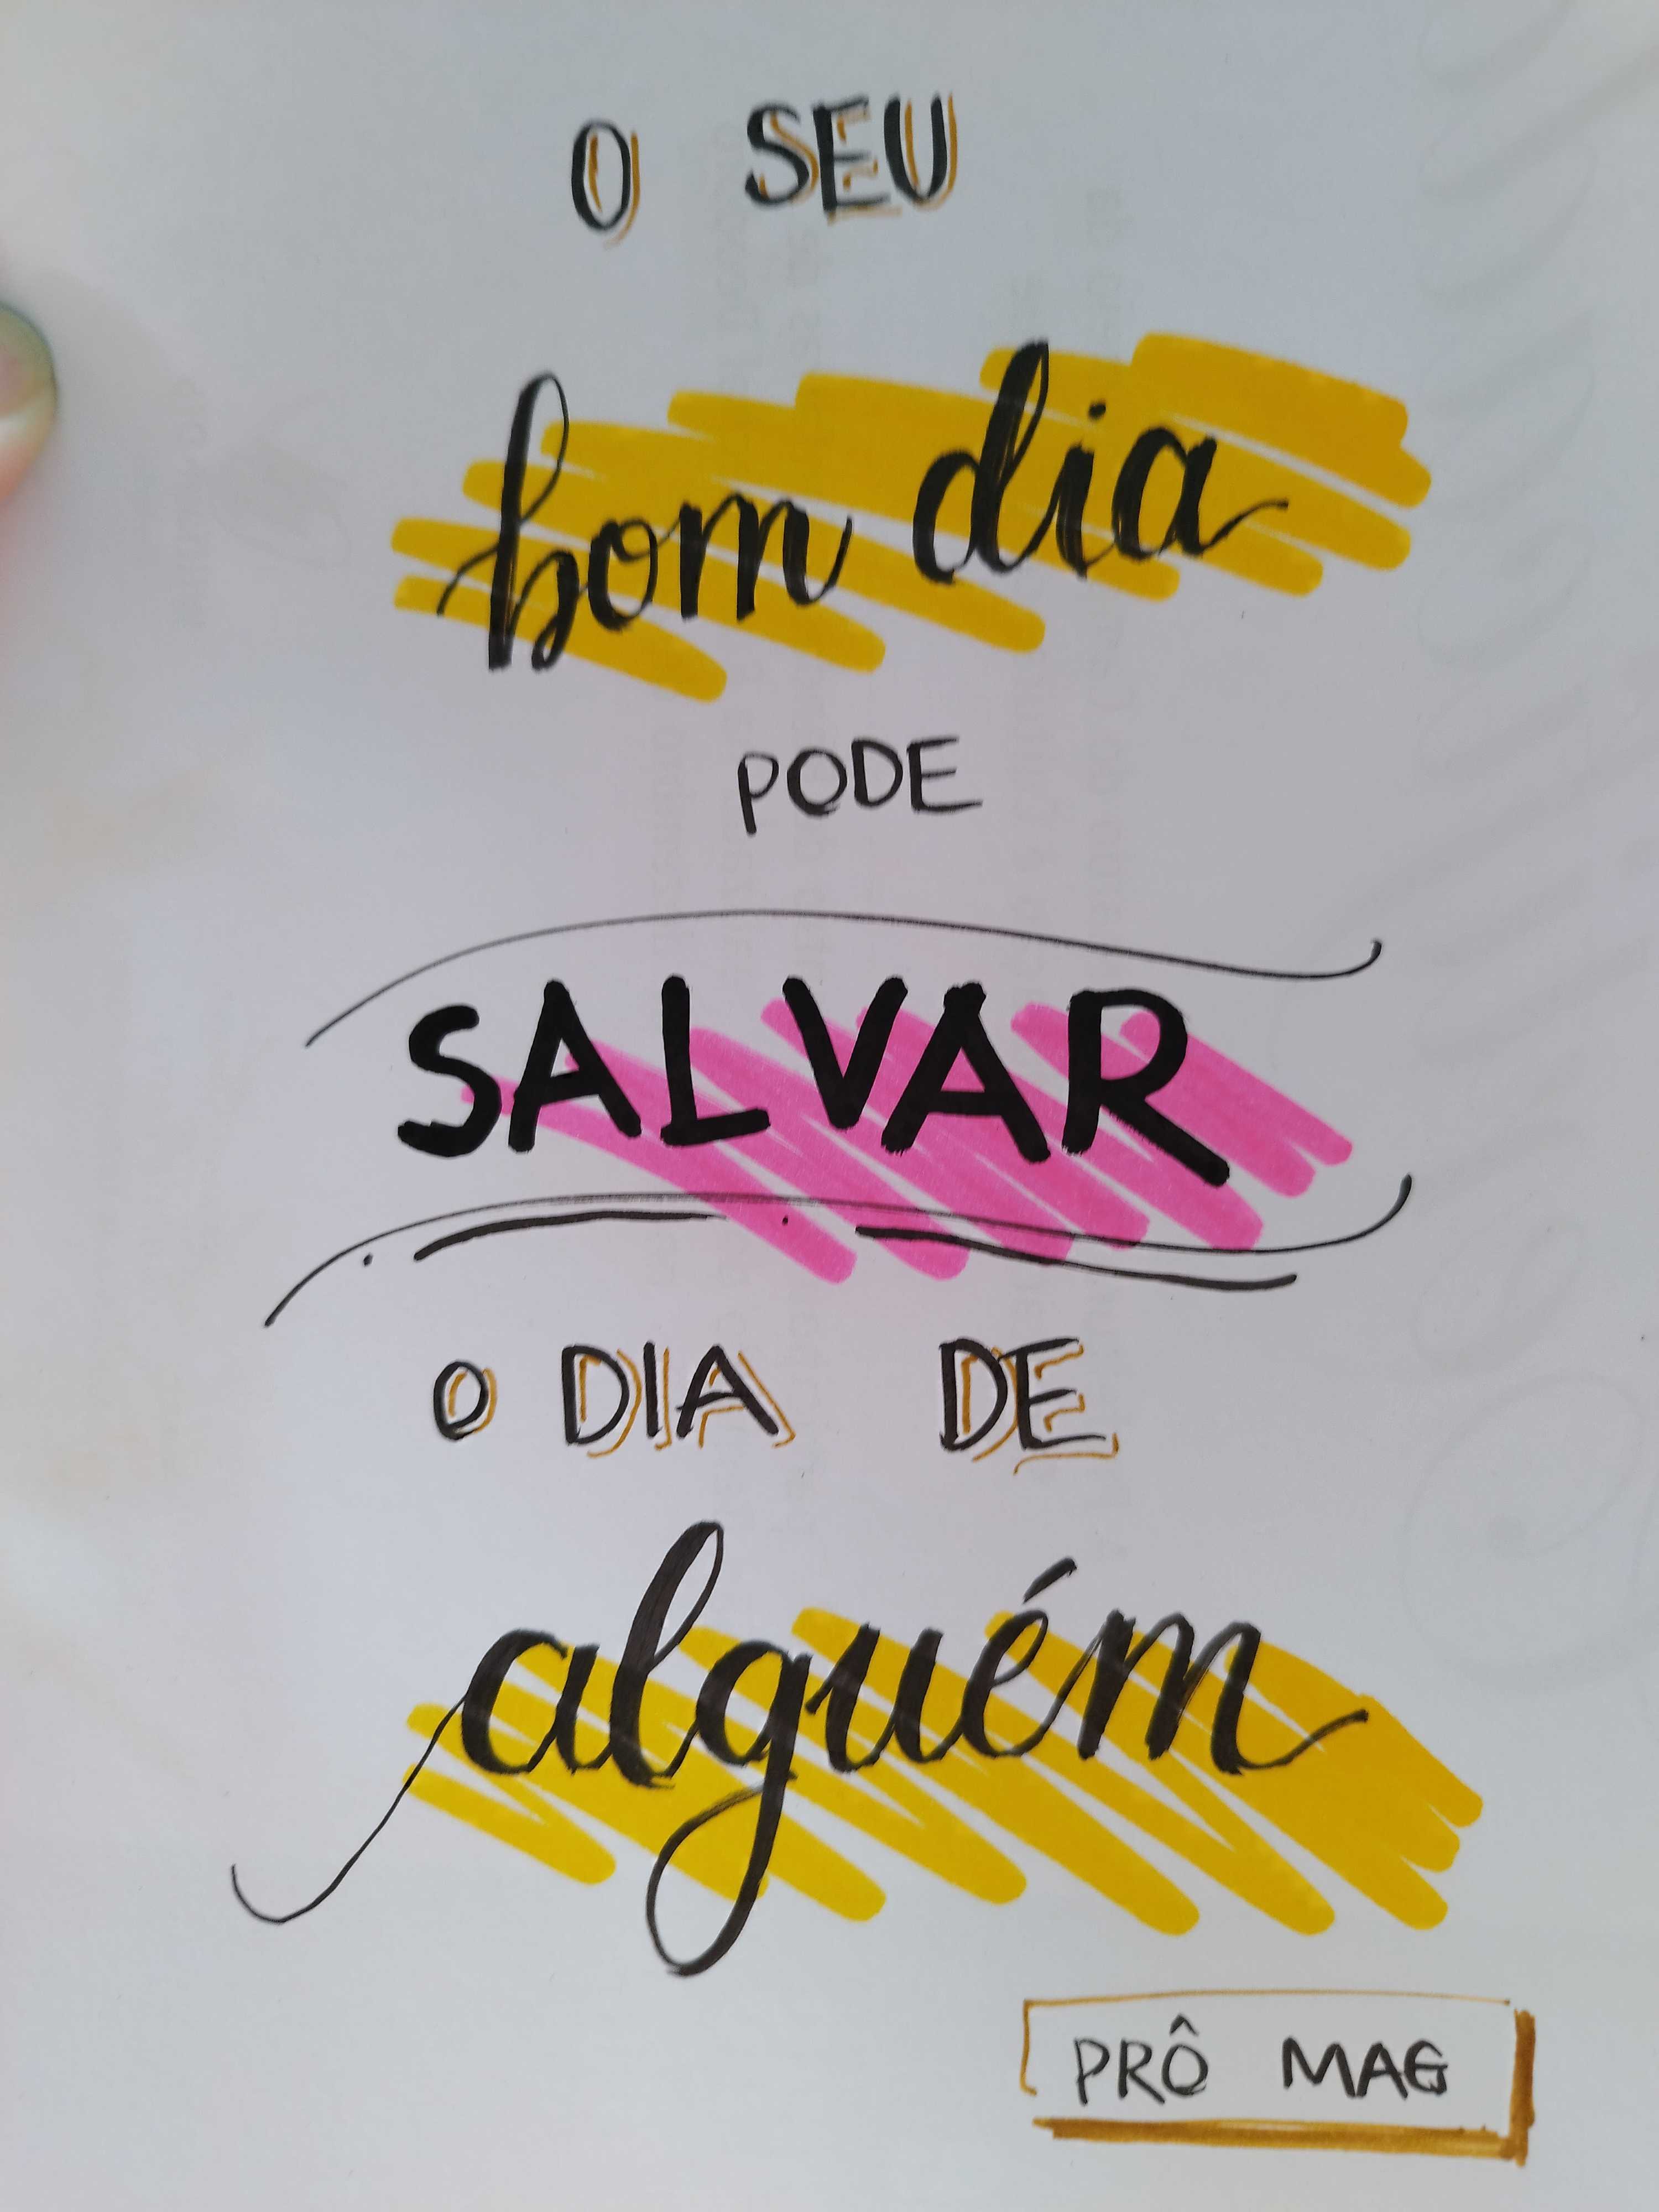 O SEU
bom dia
PODE
SALVAR
O DIA DE
alguém
PRÔ MAG